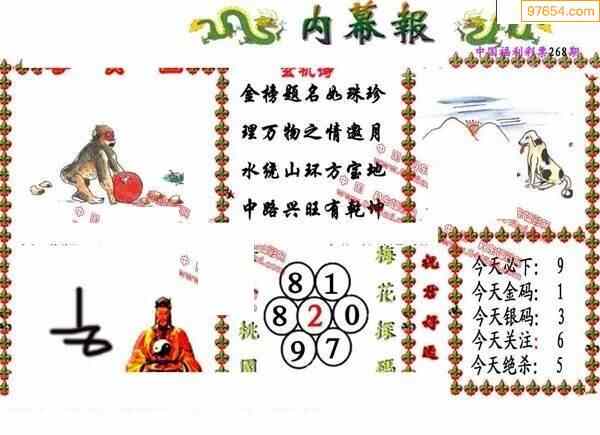 97654.com
内幕報
中国福利彩票268期
玄机诗
金榜题名如珠珍
理万物之情邀月
水绕山环方宝地
中路兴旺有乾坤
8 1
8 2 0
9 7
梅花探码
桃園
祝君好运
今天必下: 9
今天金码: 1
今天银码: 3
今天关注: 6
今天绝杀: 5